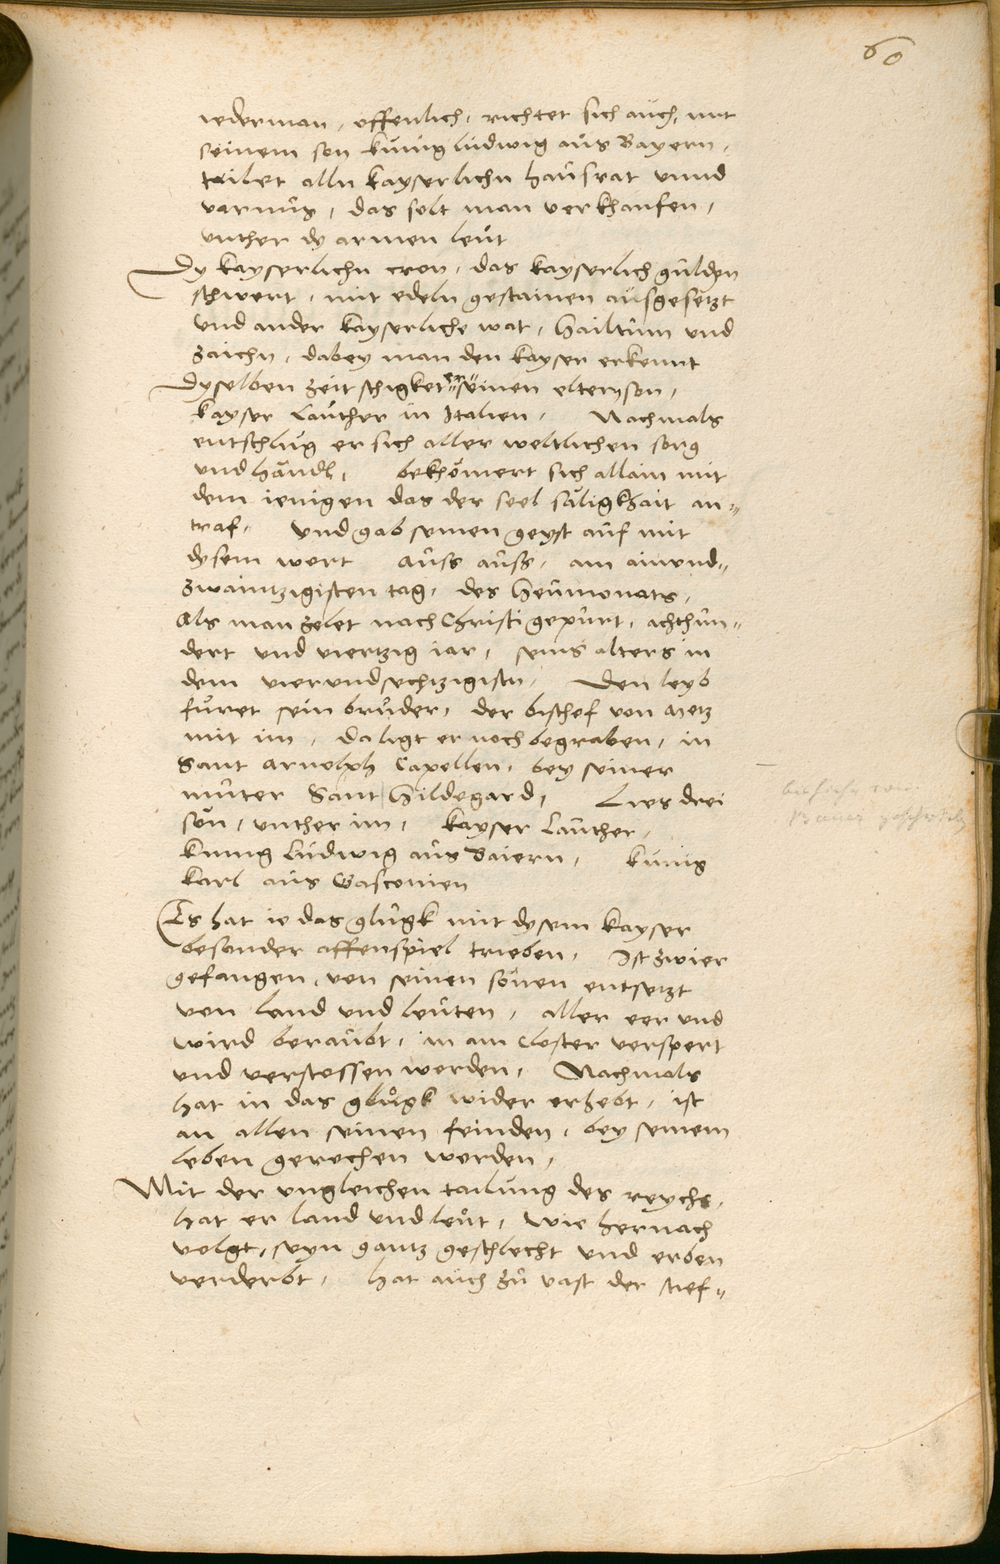 60
iederman, offenlich, richtet sich auch, mit
seinem son kunig ludwig aus Bayern,
tailet alln kayserlichn hausrat unnd
varnus, das solt man verkhaufen,
unther dy armen leut
Dy kayserlichn cron, das kayserlich gulden
schwert, mit edeln gestainen ausgesetzt
und ander kayserliche wat, hailtum und
zaichn, dabey man den kayser erkennt
Dyselben zeit schigket er seinen eltern son,
kayser Lauther in Italien, Nachmals
entschlug er sich aller weltlichen sorg
und händl, bekhömert sich allain mit
dem ienigen das der seel säligkhait an„
traf, und gab seinen geyst auf mit
dysem wort auss auss, am ainund„
zwaintzigisten tag, des Heumonats,
Als man zelet nach Christi gepurt, achthun„
dert und viertzig iar, seins alters in
dem vierundsechtzigistn, Den leyb
füret sein brůder, der bischof von Metz
mit im, da ligt er noch begraben, in
Sant Arnolph Capellen, bey seiner
můter Sant Hildegard, Lies drei
sön, unther im, kayser Lauther,
kunig Ludwig aus Baiern, kunig
Karl aus Gasconien
Es hat ie das glugk mit dysem kayser
besonder affenspiel trieben, Ist zwier
gefangen, von seinen sönen entsetzt
von land und leuten, aller eer und
wird beraubt, in ain closter verspert
und verstossen worden, Nachmals
hat in das glugk wider erhebt, ist
an allen seinen feinden, bey seinem
leben gerochen worden,
Mit der ungleichen tailung des reychs,
hat er land und leut, wie hernach
volgt, seyn gantz geschlecht und erben
verderbt, hat auch zů vast der stief„